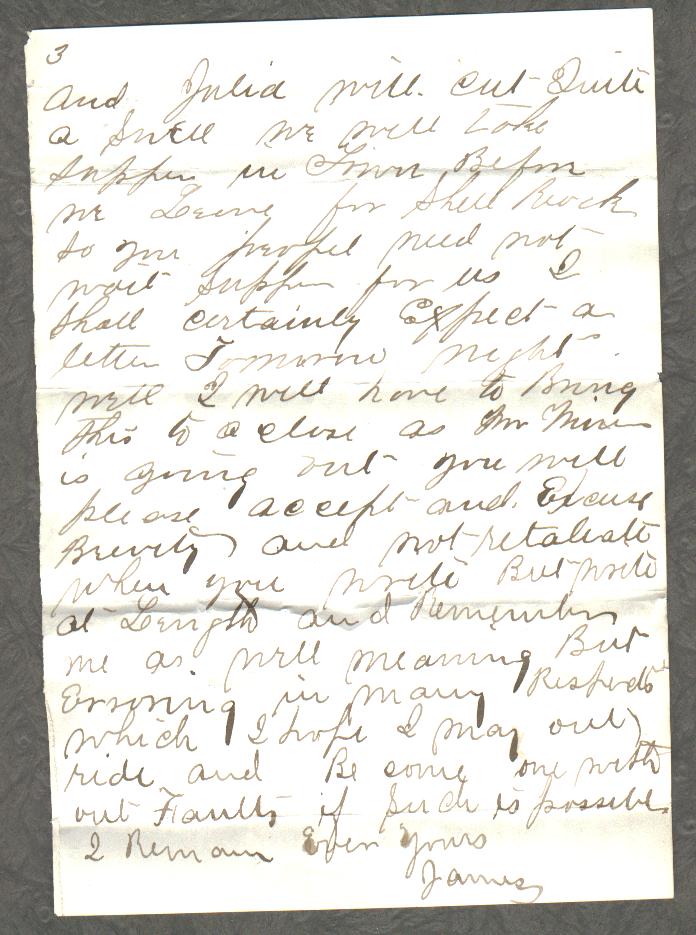 3
and Julia will cut Quite
a Swell we will take
Supper in Town Before
we Leave for Shell Rock
so you peopel need not
wait Supper for us I
Shall certainly Expect a
letter Tomorrow night
well I will have to Bring
this to a close as Mr
is going out you will
please accept and Excuse
Brevity and not retaliate
when you write But write
at Length and Remember
me as well meaning But
Erroring in many Respects
which I hope I may out
ride and Be some one with
out Faults if Such is possible
I Remain Ever Yours
James